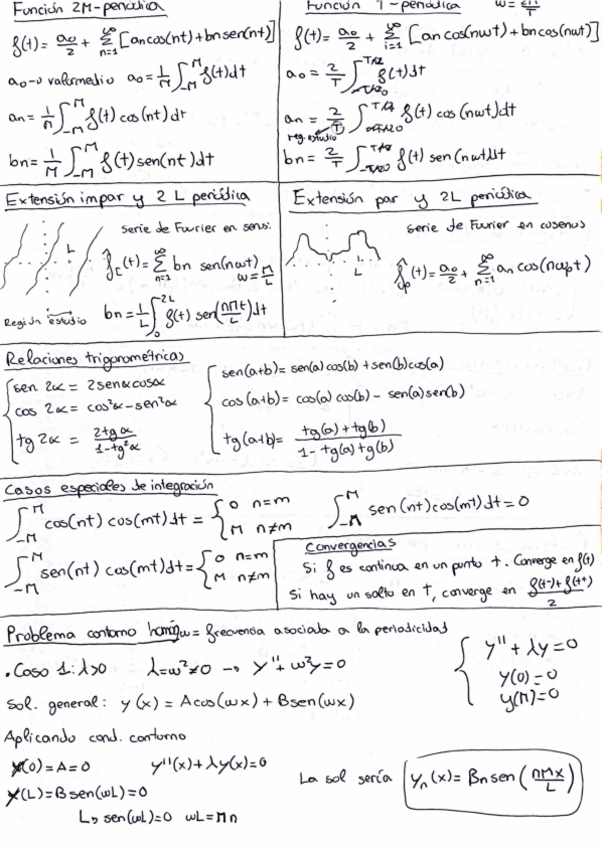 Función 2π-periódica
f(t) = a₀/2 + Σ_{n=1}^{∞} [an cos(nt) + bn sen(nt)]
a₀ → valor medio a₀ = 1/π ∫_{-π}^{π} f(t)dt
an = 1/π ∫_{-π}^{π} f(t) cos(nt) dt
bn = 1/π ∫_{-π}^{π} f(t) sen(nt) dt
Función T-periódica w = 2π/T
f(t) = a₀/2 + Σ_{i=1}^{∞} [an cos(nwt) + bn cos(nwt)]
a₀ = 2/T ∫ f(t) dt
an = 2/T ∫ f(t) cos(nwt) dt
reg. estudio
bn = 2/T ∫ f(t) sen(nwt) dt
Extensión impar y 2L periódica
serie de Fourier en senos.
L
(t) = Σ_{n=1}^{∞} bn sen(nwt)
w = π/L
Región estudio
bn = 1/L ∫_{0}^{2L} f(t) sen(nπt/L) dt
Extensión par y 2L periódica
serie de Fourier en cosenos
L
f̂p(t) = a₀/2 + Σ_{n=1}^{∞} an cos(nwpt)
Relaciones trigonométricas
sen 2α = 2senαcosα
cos 2α = cos²α - sen²α
tg 2α = 2tgα/(1 - tg²α)
sen(a+b) = sen(a) cos(b) + sen(b) cos(a)
cos(a+b) = cos(a) cos(b) - sen(a) sen(b)
tg(a+b) = (tg(a) + tg(b))/(1 - tg(a) tg(b))
Casos especiales de integración
∫_{-π}^{π} cos(nt) cos(mt) dt = { 0 n=m
π n≠m
∫_{-π}^{π} sen(nt) cos(mt) dt = 0
∫_{-π}^{π} sen(nt) cos(mt) dt = { 0 n=m
π n≠m
Convergencias
Si f es continua en un punto t. Converge en f(t)
Si hay un salto en t, converge en (f(t⁻) + f(t⁺))/2
Problema contorno homog w = frecuencia asociada a la periodicidad
• Caso 1: λ>0 λ = w² ≠ 0 → y'' + w²y = 0
Sol. general: y(x) = A cos(wx) + B sen(wx)
y'' + λy = 0
y(0) = 0
y(π) = 0
Aplicando cond. contorno
y(0) = A = 0 y''(x) + λy(x) = 0
y(L) = B sen(wL) = 0
↳ sen(wL) = 0 wL = πn
La sol sería yn(x) = Bn sen(nπx/L)